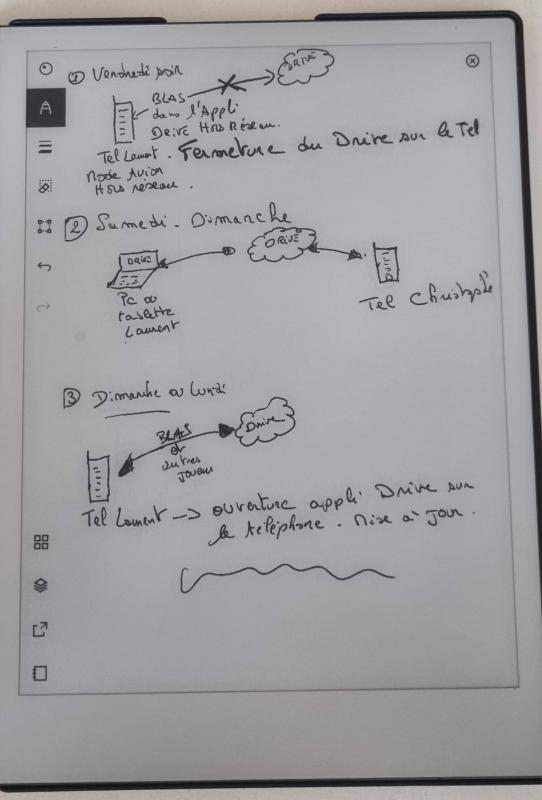 ① Vendredi soir
DRIVE
BLAS
dans l'Appli
DRIVE Hors Réseau.
Tel Laurent. Fermeture du Drive sur le Tel
Mode Avion
Hors réseau.
② Samedi - Dimanche
DRIVE
DRIVE
PC ou
tablette
Laurent
Tel Christophe
③ Dimanche ou Lundi
BLAS
et
autres
joueurs
Drive
Tel Laurent → ouverture appli Drive sur
le téléphone. Mise à jour.